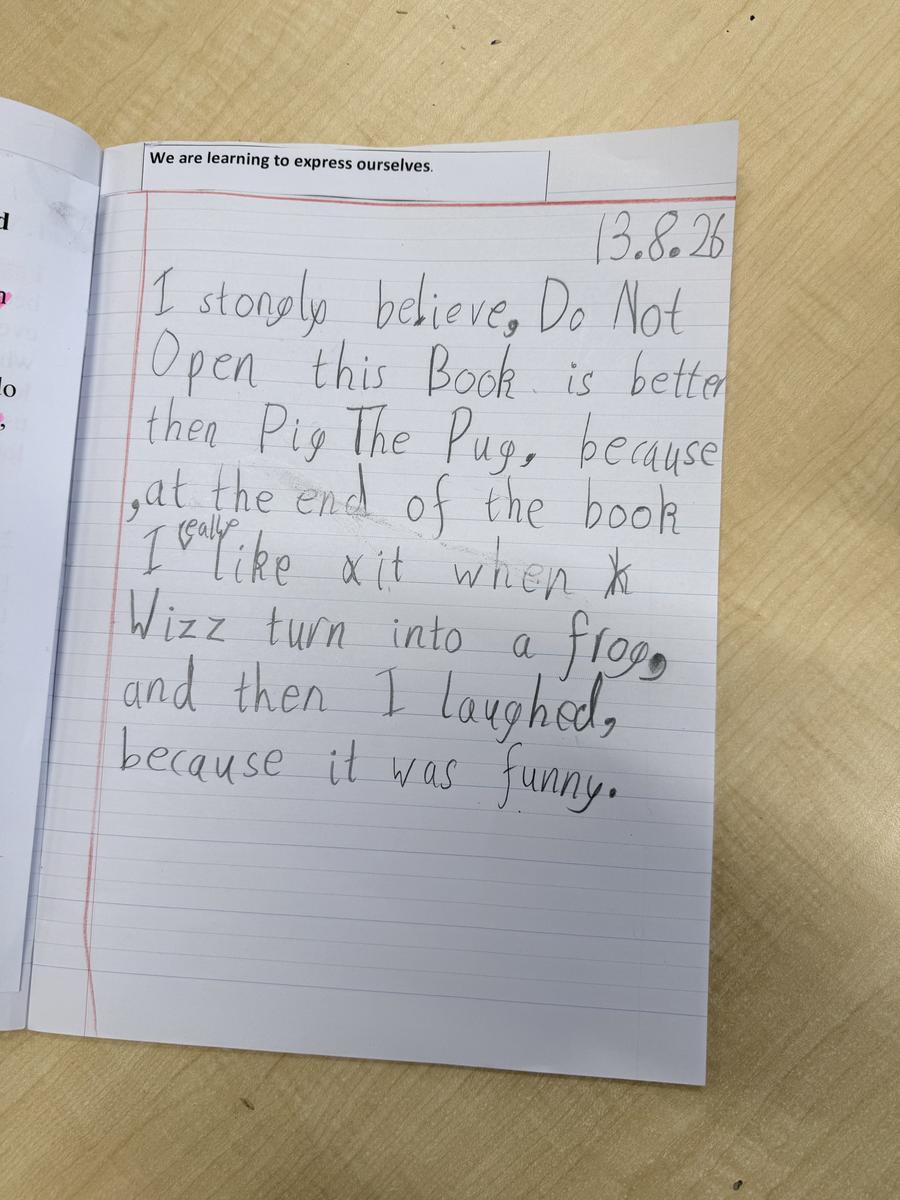 d
n
lo
,
We are learning to express ourselves.
13.8.26
I stongly believe, Do Not
Open this Book is better
then Pig The Pug, because
,at the end of the book
I really like it when
Wizz turn into a frog,
and then I laughed,
because it was funny.